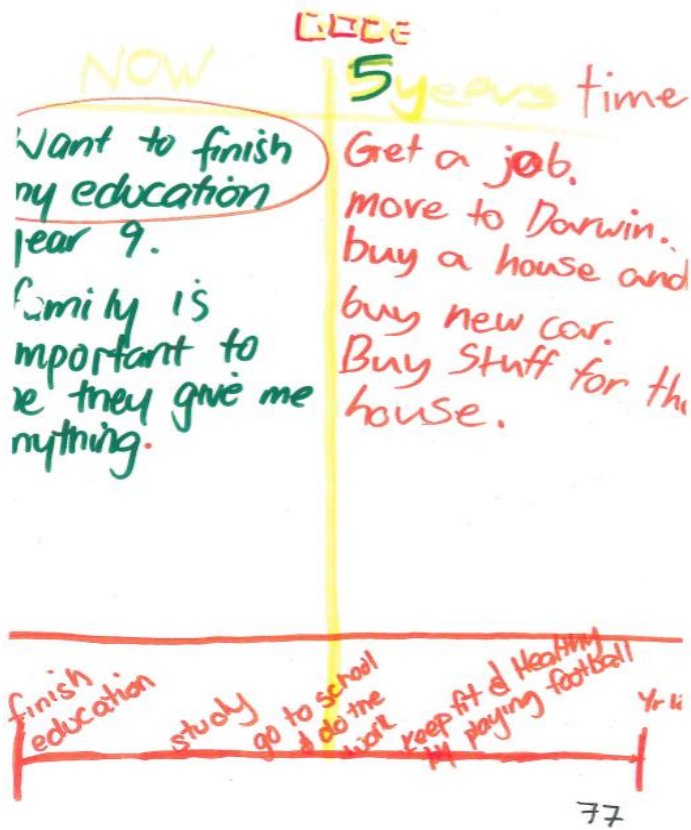 CODE
NOW
5 years time
Want to finish
my education
year 9.
family is
important to
me they give me
anything.
Get a job.
move to Darwin.
buy a house and
buy new car.
Buy Stuff for the
house.
finish
education
study
go to school
& do the
work
keep fit & Healthy
by playing football
Yr
77